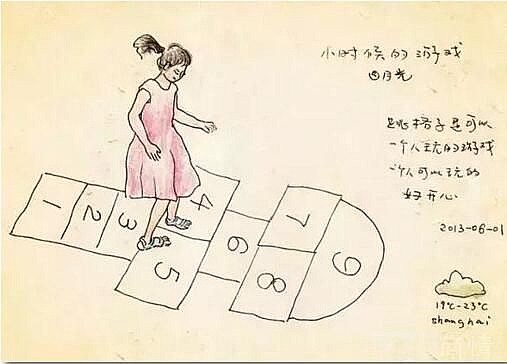 小时候的游戏
四月光
跳格子是可以
一个人玩的游戏
一个人可以玩的
好开心
2013-06-01
19℃-23℃
shanghai
1
2
3
4
5
6
7
8
9